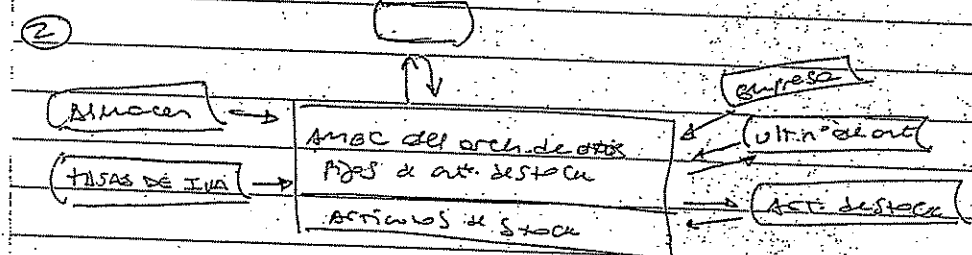 2
Almacen
TASAS DE IVA
AMBC del arch. de datos
fijos de art. de stock
Articulos de Stock
empresa
Ult. nº de art
Art. de Stock